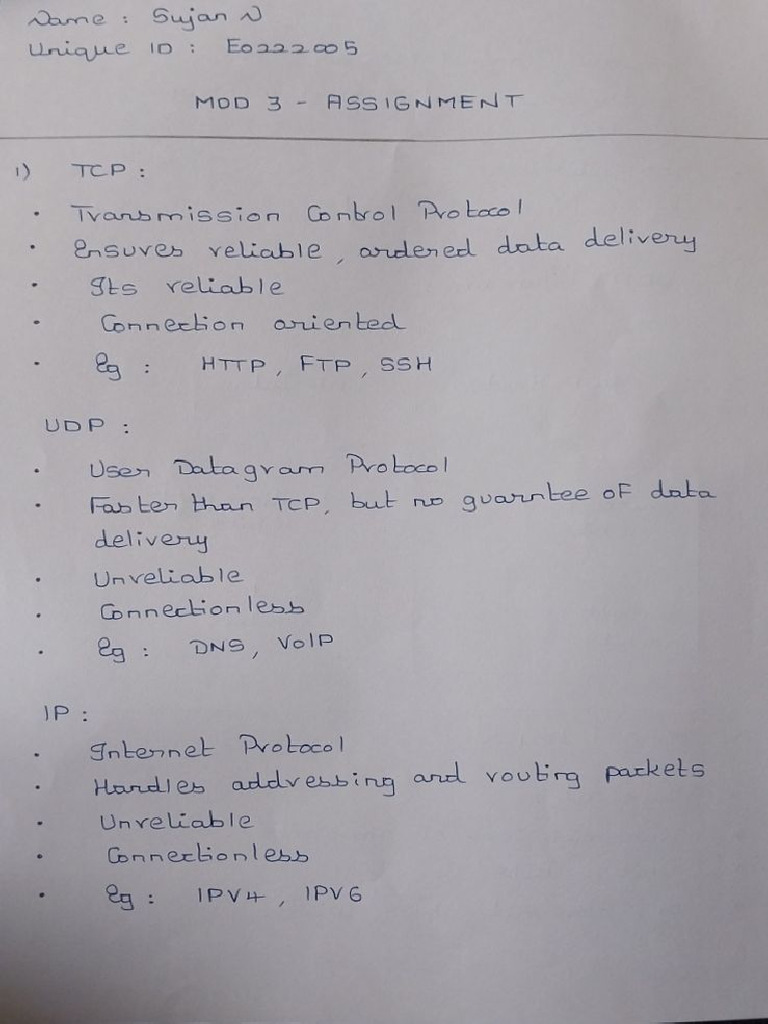 Name : Sujan N
Unique ID : E0222005
MOD 3 - ASSIGNMENT
1) TCP :
• Transmission Control Protocol
• Ensures reliable, ordered data delivery
• Its reliable
• Connection oriented
• Eg : HTTP, FTP, SSH
UDP :
• User Datagram Protocol
• Faster than TCP, but no guarntee of data
delivery
• Unreliable
• Connectionless
• Eg : DNS, VoIP
IP :
• Internet Protocol
• Handles addressing and routing packets
• Unreliable
• Connectionless
• Eg : IPV4, IPV6